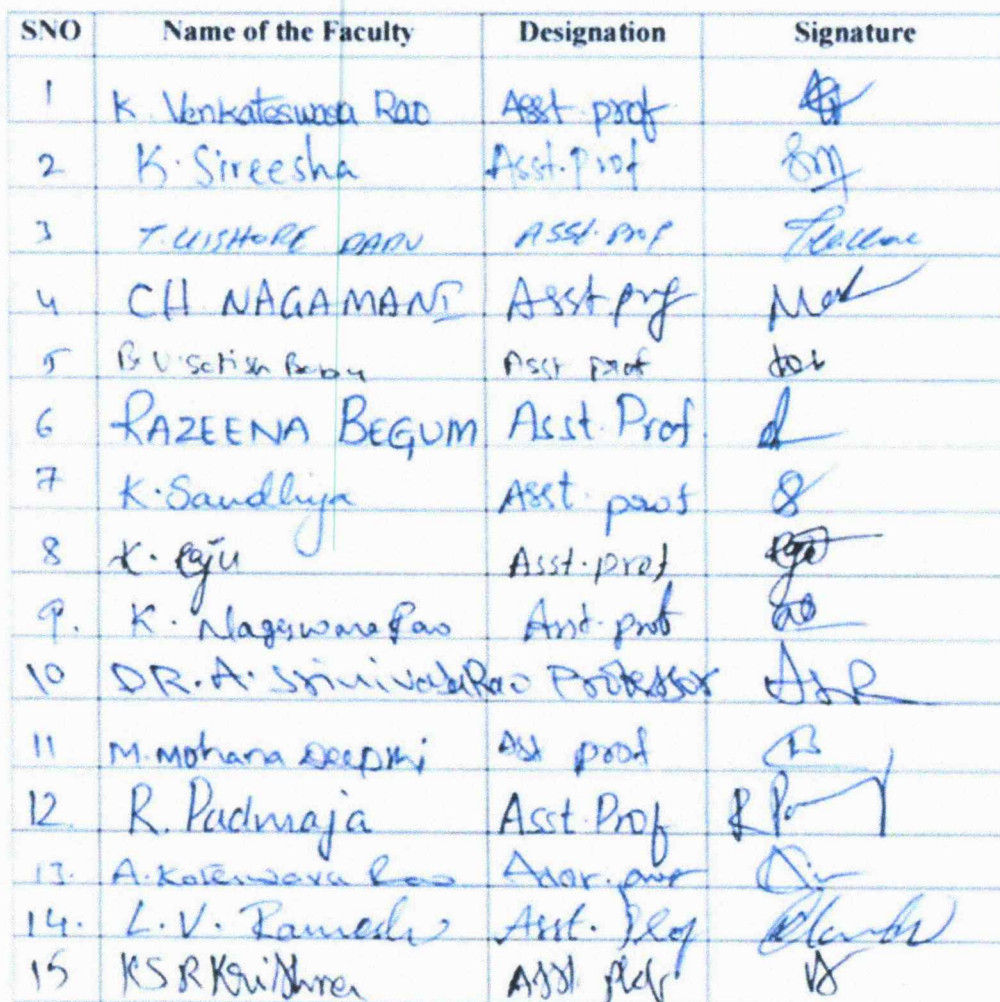 SNO Name of the Faculty Designation Signature
1 K. Venkateswara Rao Asst. prof
2 K. Sireesha Asst. Prof
3 T. KISHORE BABU ASST. PROF
4 CH. NAGAMANI Asst. prof
5 B.V. Satish Babu Asst prof
6 RAZEENA BEGUM Asst. Prof.
7 K. Sandhya Asst. prof
8 K. Raju Asst. prof
9. K. Nageswara Rao Asst. prof
10 DR. A. Srinivasa Rao Professor ASR
11 M. Mohana Deepthi Asst prof
12. R. Padmaja Asst. Prof
13. A. Koteswara Rao
14. L.V. Ramesh Asst. Prof
15 KSR Krishna Asst. prof